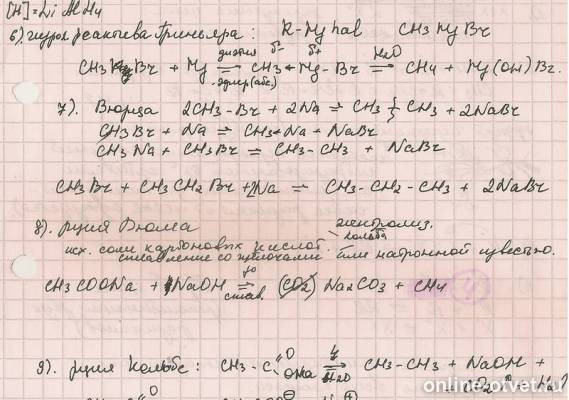 [H] = LiAlH4
6). гидрол реактива Гриньяра: R-MgHal CH3MgBr
CH3Br + Mg ⇌ диэтил эфир (абс.) CH3 ← Mg - Br H2O ⇌ CH4 + Mg(OH)Br.
δ- δ+
7). Вюрца 2CH3-Br + 2Na = CH3 CH3 + 2NaBr
CH3Br + Na = CH3Na + NaBr
CH3Na + CH3Br = CH3-CH3 + NaBr
CH3Br + CH3CH2Br + 2Na = CH3-CH2-CH3 + 2NaBr
8). р-ция Дюма электролиз.
Кольба
исх. соли карбоновых кислот.
сплавление со щелочами или натронной известью.
CH3COONa + NaOH t° = сплав. (CO2) Na2CO3 + CH4
9). р-ция Кольбе: CH3-C O ONa H2O = CH3-CH3 + NaOH +
+ CO2 + H2
online-otvet.ru